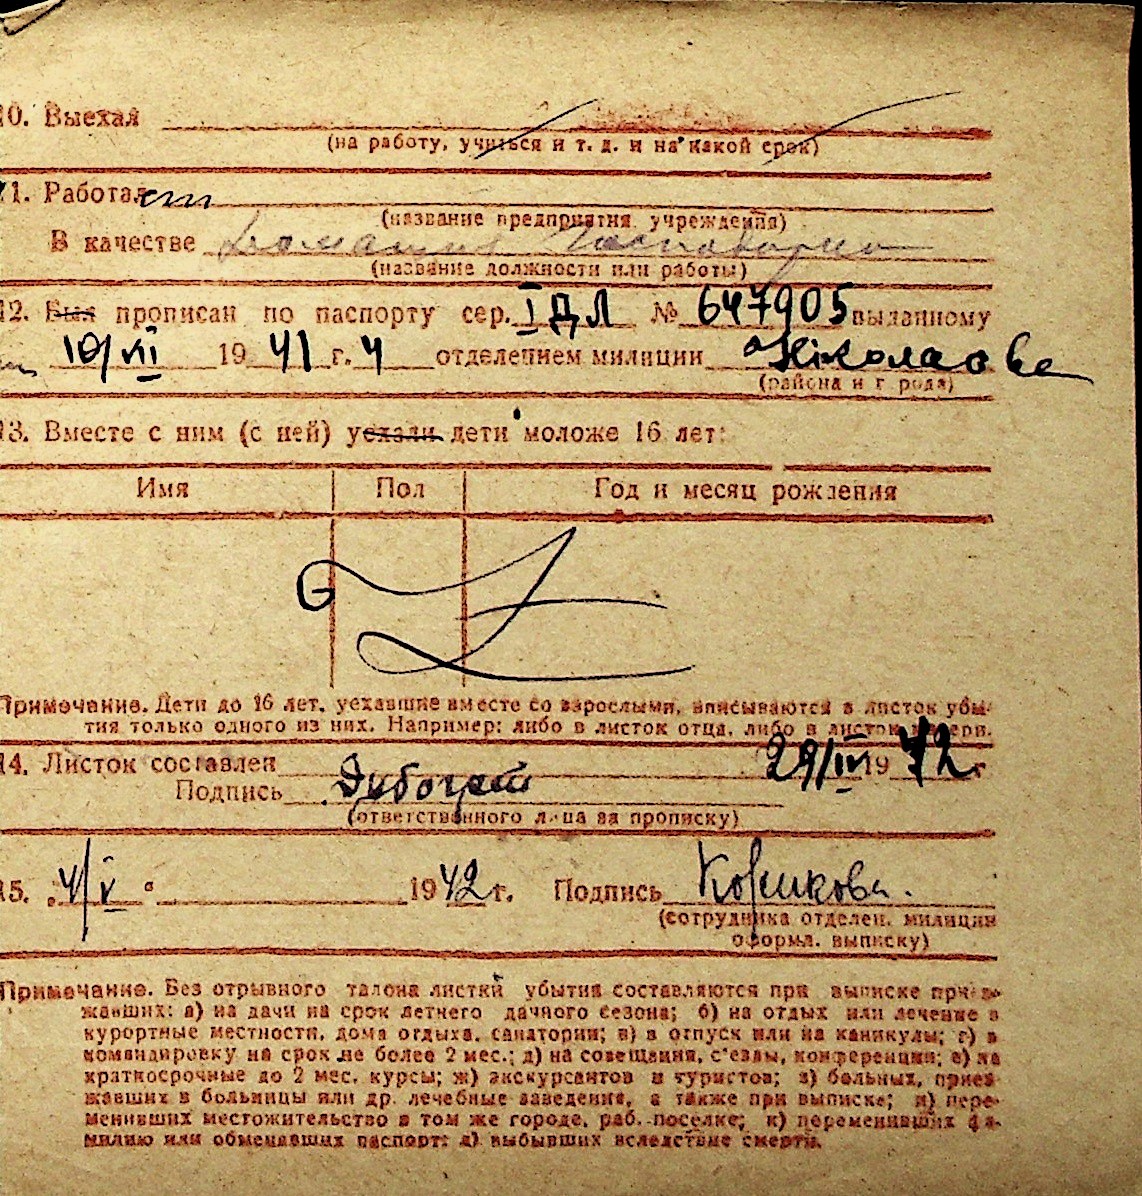 10. Выехал
(на работу, учиться и т. д. и на какой срок)
11. Работал
(название предприятия, учреждения)
В качестве
(название должности или работы)
12. Был прописан по паспорту сер. ІДЛ № 647905 выданному
10/VII 1941 г. 4 отделением милиции
(района и города)
13. Вместе с ним (с ней) уехали дети моложе 16 лет:
Имя Пол Год и месяц рождения
Примечание. Дети до 16 лет, уехавшие вместе со взрослыми, вписываются в листок убы-
тия только одного из них. Например: либо в листок отца, либо в листок матери.
14. Листок составлен 29/IV 1942 г
Подпись
(ответственного лица за прописку)
15. „4/V“ 1942 г. Подпись
(сотрудника отделен. милиции
оформл. выписку)
Примечание. Без отрывного талона листки убытия составляются при выписке приез-
жавших: а) на дачи на срок летнего дачного сезона; б) на отдых или лечение в
курортные местности, дома отдыха, санатории; в) в отпуск или на каникулы; г) в
командировку на срок не более 2 мес.; д) на совещания, с'езды, конференции; е) на
краткосрочные до 2 мес. курсы; ж) экскурсантов и туристов; з) больных, приез-
жавших в больницы или др. лечебные заведения, а также при выписке; и) пере-
менивших местожительство в том же городе, раб. поселке; к) переменивших фа-
милию или обменявших паспорт; л) выбывших вследствие смерти.